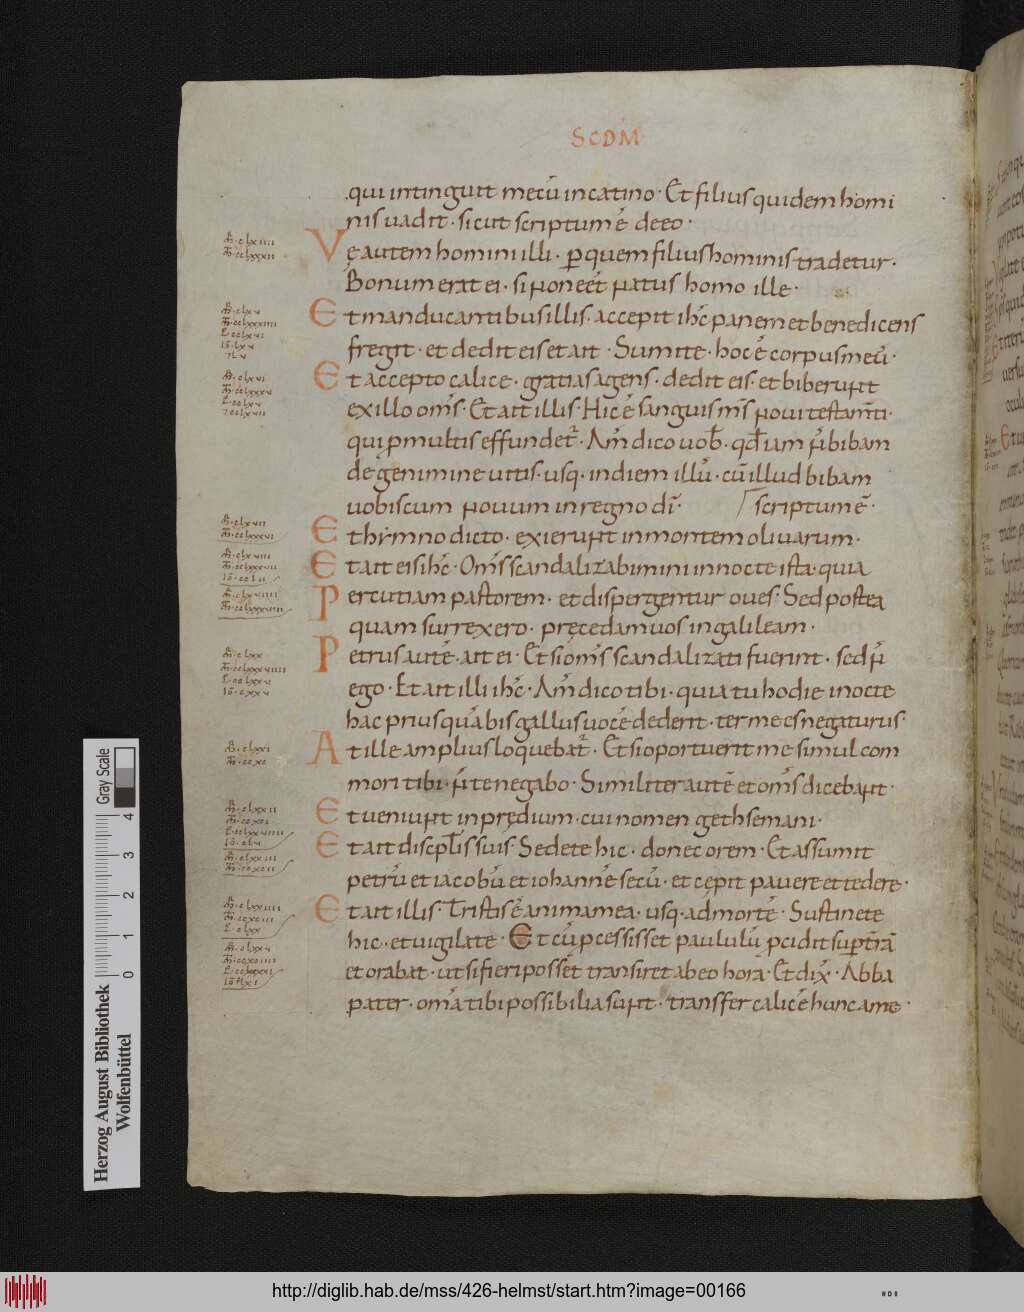 SCDM
qui intinguit mecū in catino · Et filius quidem homi
nis uadit · sicut scriptum ē de eo ·
Ve autem homini illi · p quem filius hominis tradetur ·
Bonum erat ei · si non eēt natus homo ille ·
Et manducantibus illis · accepit ihc̄ panem et benedicens
fregit · et dedit eis et ait · Sumite · hoc ē corpus meū ·
Et accepto calice · gratias agens · dedit eis · et biberunt
ex illo om̄s · Et ait illis · Hic ē sanguis m̄s noui testam̄ti ·
qui p multis effundet̄ · Am̄ dico uob̄ · qd̄ iam n̄ bibam
de genimine uitis · usq · in diem illū · cū illud bibam
uobiscum nouum in regno dī · scriptum ē ·
Et hẏmno dicto · exierunt in montem oliuarum ·
Et ait eis ihc̄ · Om̄s scandalizabimini in nocte ista · quia
Percutiam pastorem · et dispergentur oues · Sed postea
quam surrexero · pręcedam uos in galileam ·
Petrus autē · ait ei · Et si om̄s scandalizati fuerint · sed n̄
ego · Et ait illi ihc̄ · Am̄ dico tibi · quia tu hodie in octe
hac prius quā bis gallus uocē dederit · ter me es negaturus ·
At ille amplius loquebat̄ · Et si oportuerit me simul com
mori tibi · n̄ te negabo · Similiter autē et om̄s dicebant ·
Et ueniunt in prędium · cui nomen gethsemani ·
Et ait discipl̄is suis · Sedete hic · donec orem · Et assumit
petrū et iacobū et iohannē secū · et cępit pauere et tedere ·
Et ait illis · Tristis ē anima mea · usq · ad mortē · Sustinete
hic · et uigilate · Et cū pcessisset paululū pcidit sup t̄rā
et orabat · ut si fieri possēt transiret ab eo hora · Et dix̄ · Abba
pater · om̄a tibi possibilia sunt · transfer calicē hunc a me ·
Gray Scale
4
3
2
1
0
Herzog August Bibliothek
Wolfenbüttel
http://diglib.hab.de/mss/426-helmst/start.htm?image=00166